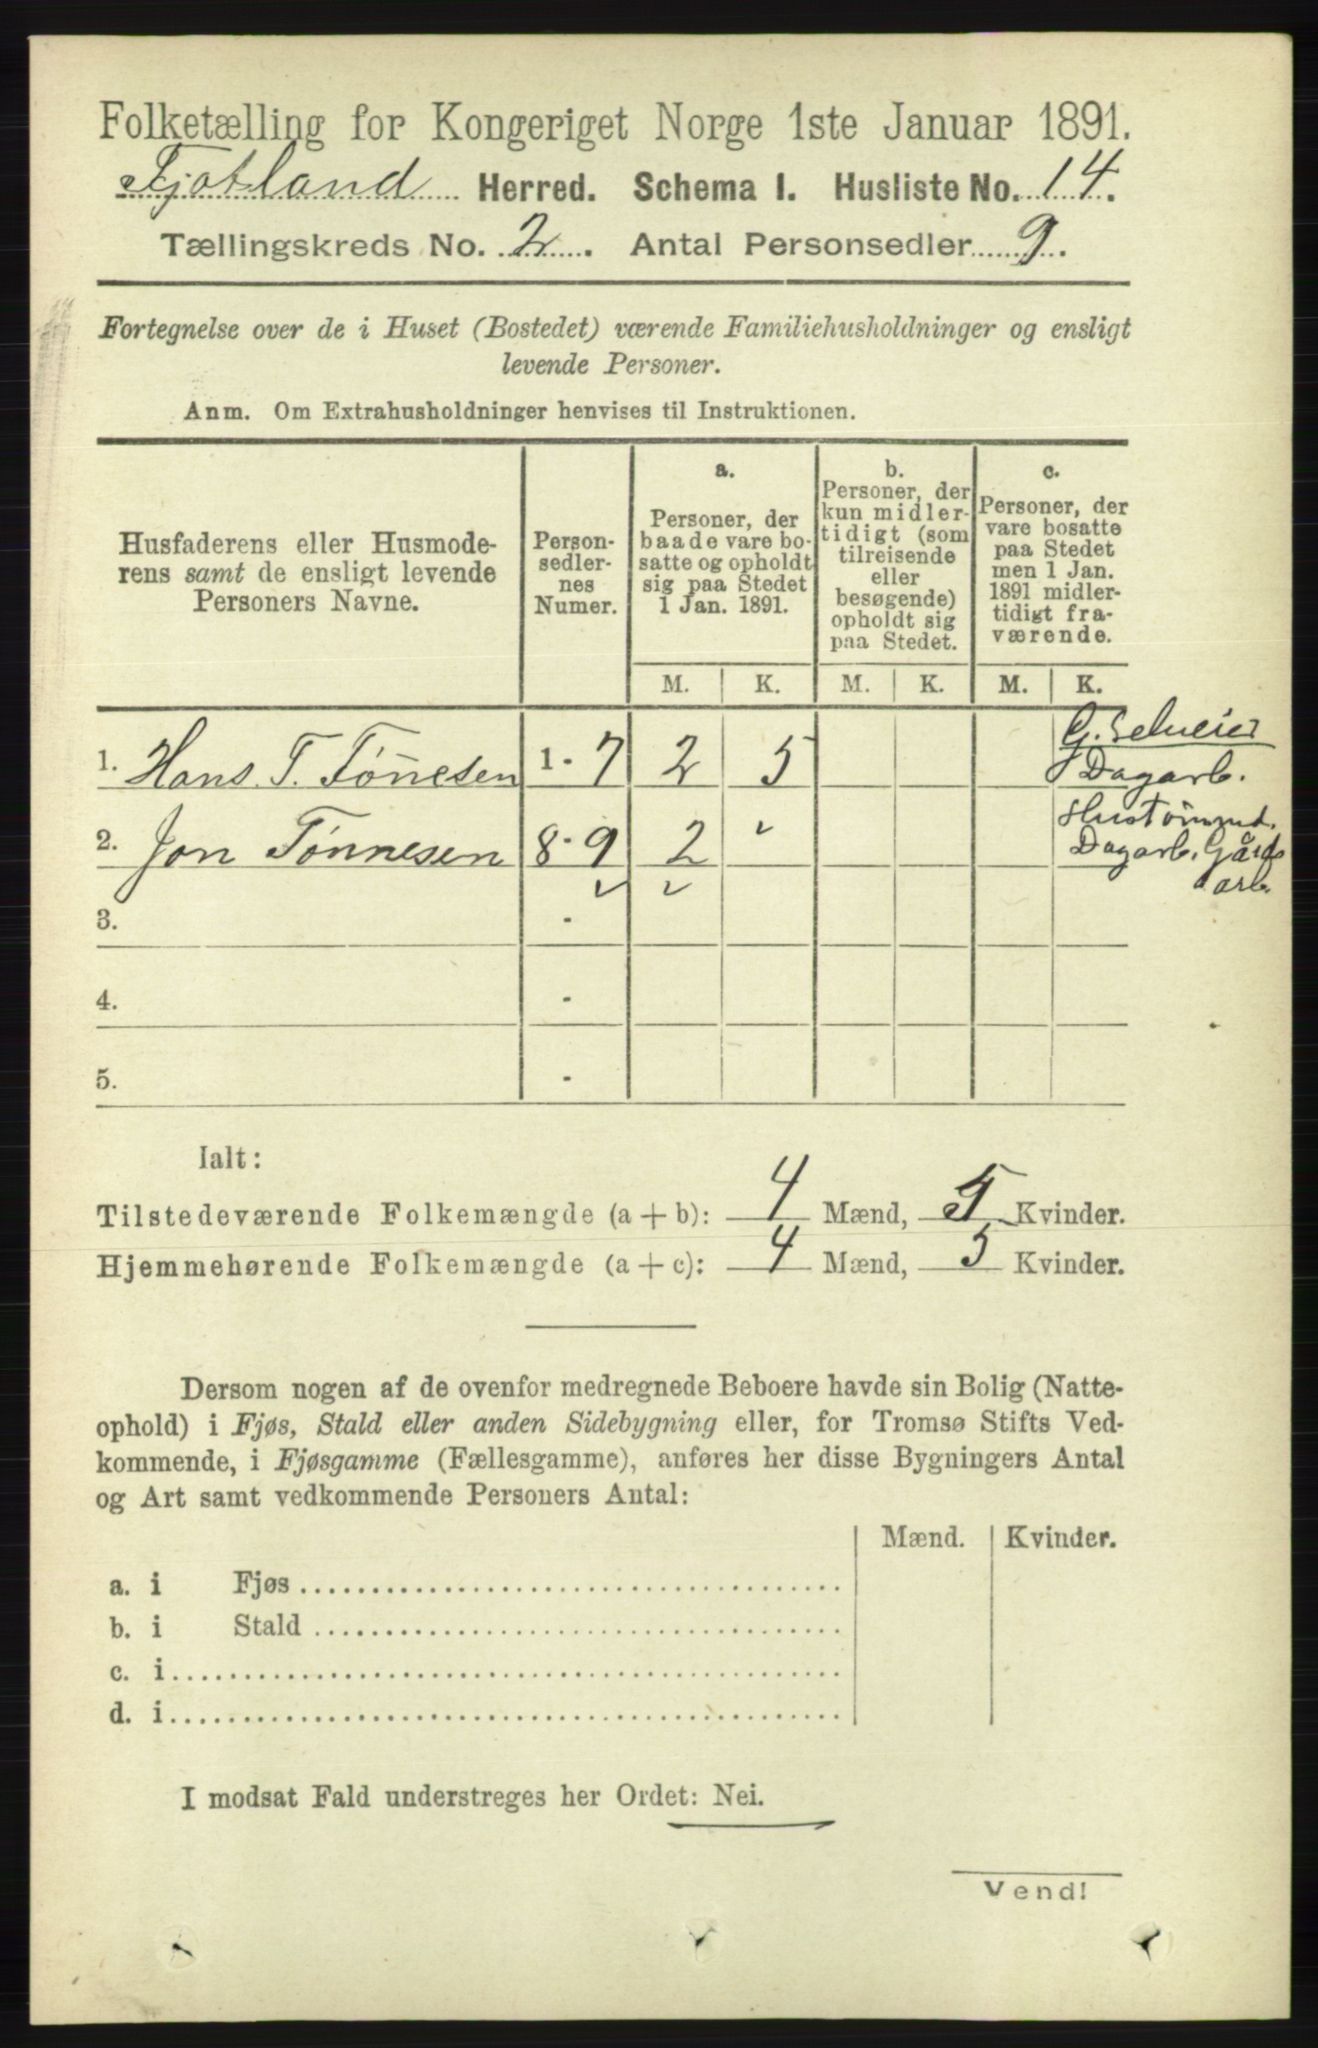 Folketælling for Kongeriget Norge 1ste Januar 1891.
Fjotland Herred. Schema I. Husliste No. 14.
Tællingskreds No. 2. Antal Personsedler 9.
Fortegnelse over de i Huset (Bostedet) værende Familiehusholdninger og ensligt
levende Personer.
Anm. Om Extrahusholdninger henvises til Instruktionen.
Husfaderens eller Husmode-
rens samt de ensligt levende
Personers Navne.
Person-
sedler-
nes
Numer.
a.
Personer, der
baade vare bo-
satte og opholdt
sig paa Stedet
1 Jan. 1891.
b.
Personer, der
kun midler-
tidigt (som
tilreisende
eller
besøgende)
opholdt sig
paa Stedet.
c.
Personer, der
vare bosatte
paa Stedet
men 1 Jan.
1891 midler-
tidigt fra-
værende.
M. K. M. K. M. K.
1. Hans T. Tönnesen 1 - 7 2 5 G. Selveier
Dagarb.
2. Jon Tönnesen 8 - 9 2
Dagarb. Gårds
arb.
3. -
4. -
5. -
Ialt:
Tilstedeværende Folkemængde (a + b): 4 Mænd, 5 Kvinder.
Hjemmehørende Folkemængde (a + c): 4 Mænd, 5 Kvinder.
Dersom nogen af de ovenfor medregnede Beboere havde sin Bolig (Natte-
ophold) i Fjøs, Stald eller anden Sidebygning eller, for Tromsø Stifts Ved-
kommende, i Fjøsgamme (Fællesgamme), anføres her disse Bygningers Antal
og Art samt vedkommende Personers Antal:
Mænd. Kvinder.
a. i Fjøs
b. i Stald
c. i
d. i
I modsat Fald understreges her Ordet: Nei.
Vend!